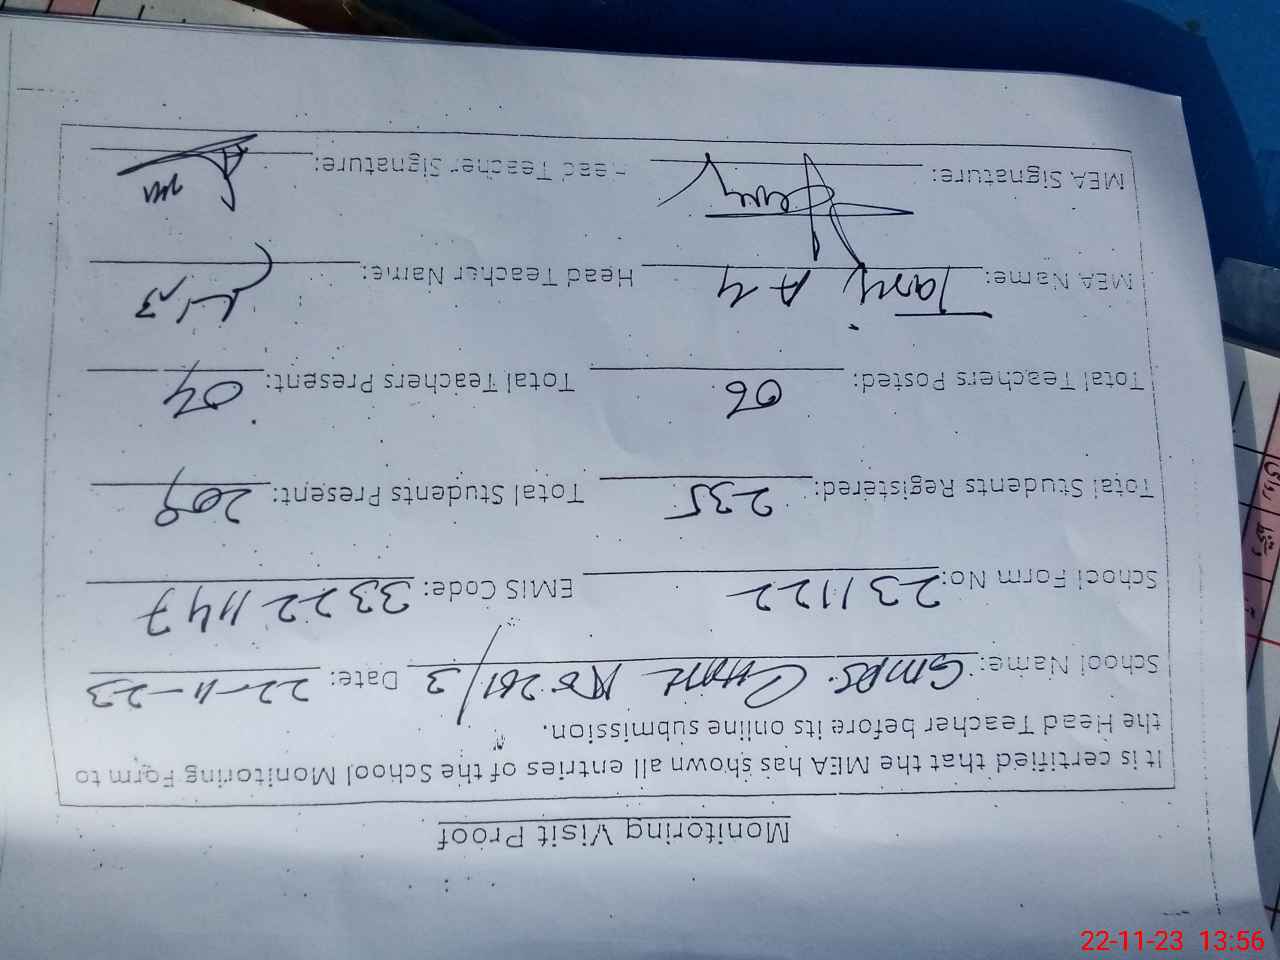 Monitoring Visit Proof
It is certified that the MEA has shown all entries of the School Monitoring Form to
the Head Teacher before its online submission.
School Name: GMPS. Chak No 261/3 Date: 22-11-23
School Form No: 231122 EMIS Code: 33221147
Total Students Registered: 235 Total Students Present: 209
Total Teachers Posted: 06 Total Teachers Present: 04
MEA Name: Head Teacher Name:
MEA Signature: Head Teacher Signature:
22-11-23 13:56